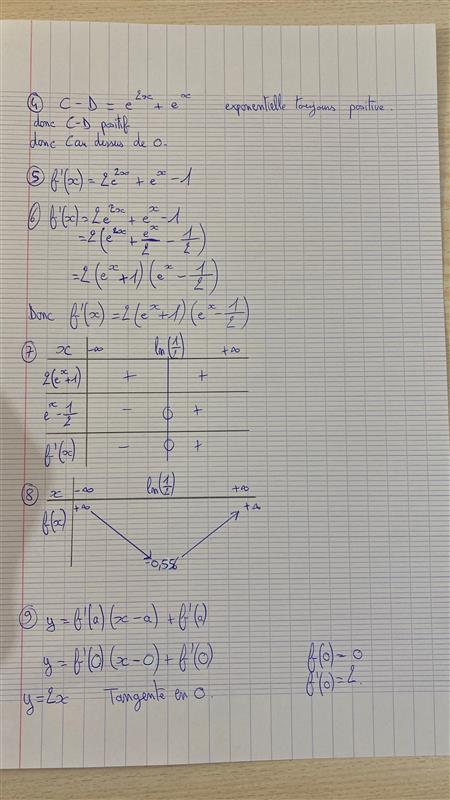 ④ C-D = e^{2x} + e^x exponentielle toujours positive.
donc C-D positif
donc C au dessus de D.
⑤ f'(x) = 2e^{2x} + e^x - 1
⑥ f'(x) = 2e^{2x} + e^x - 1
= 2(e^{2x} + e^x/2 - 1/2)
= 2(e^x + 1)(e^x - 1/2)
Donc f'(x) = 2(e^x + 1)(e^x - 1/2)
⑦ x -∞ ln(1/2) +∞
2(e^x+1) + +
e^x - 1/2 - 0 +
f'(x) - 0 +
⑧ x -∞ ln(1/2) +∞
f(x) +∞ +∞
-0,556
⑨ y = f'(a)(x-a) + f'(a)
y = f'(0)(x-0) + f'(0) f(0) = 0
f'(0) = 2.
y = 2x Tangente en 0.